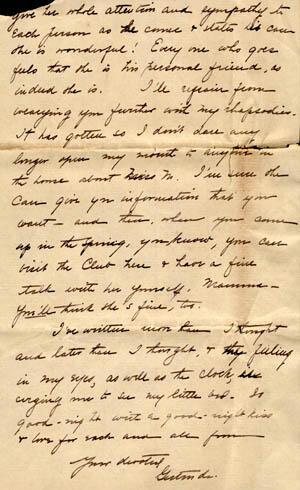 give her whole attention and sympathy to
each person as she comes & states his case
she is wonderful! Every one who goes
feels that she is his personal friend, as
indeed she is. I'll refrain from
wearying you further with my rhapsodies.
It has gotten so I don't dare any
longer open my mouth to anyone in
the home about Miss M. I'm sure she
can give you information that you
want – and then, when you come
up in the spring, you know, you can
visit the Club here & have a fine
talk with her yourself, Mamma –
You'll think she's fine, too.
I've written more than I thought
and later than I thought, & the feeling
in my eyes, as well as the clock, is
urging me to see my little bed. So
good-night with a good-night kiss
& love for each and all from
Your devoted
Gertrude.